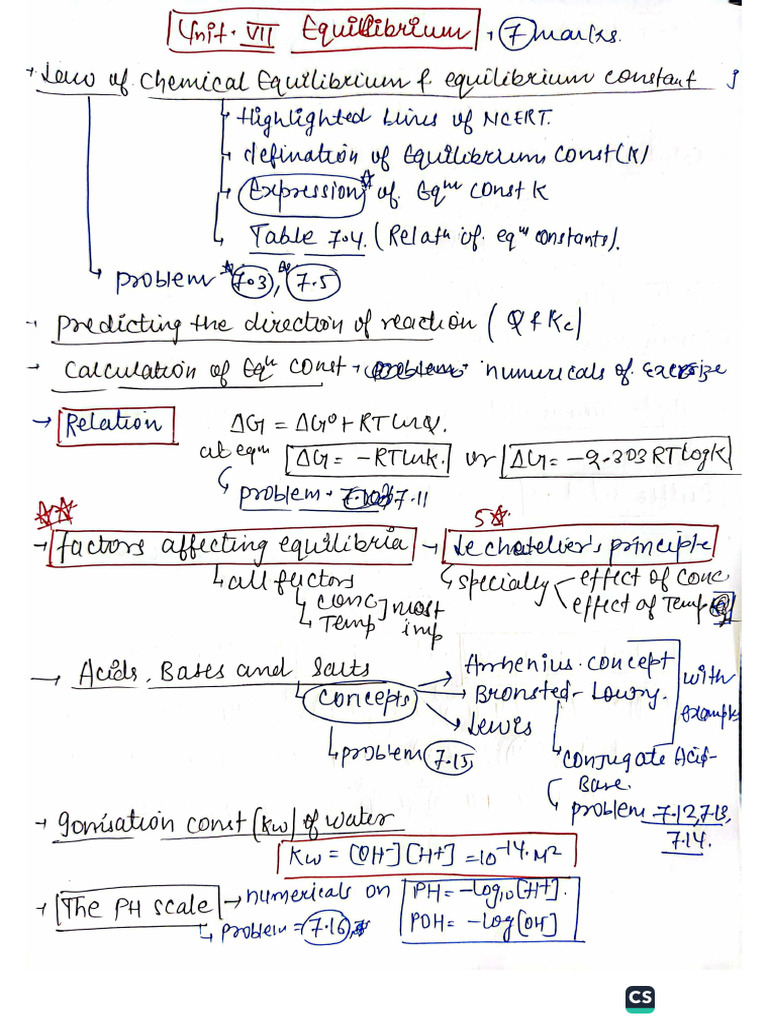 Unit. VII Equilibrium, (7) marks.
Law of Chemical Equilibrium & equilibrium constant
Highlighted Lines of NCERT.
defination of Equilibrium Const(K)
Expression of Eqm const K
Table 7.4. (Relatn of. eqm constants).
problem 7.3, 7.5
Predicting the direction of reaction (Q & Kc)
Calculation of Eqm const problem numericals of. Excersize
Relation ΔG = ΔG° + RTlnQ.
at eqm ΔG = -RTlnk. or ΔG = -2.303 RT logK
problem. 7.11
5
factors affecting equilibria Le chatelier's principle
all factors specially effect of conc
conc ] most effect of Temp
Temp imp
Acids, Bases and Salts Arrhenius. concept with
concepts Bronsted-Lowry. examples
Lewis
problem 7.15 conjugate Acid-
Base.
problem 7.12, 7.13,
7.14.
Ionisation const (Kw) of water
Kw = [OH-][H+] = 10-14. M2
The PH scale numericals on PH = -log10[H+].
problem = 7.16, POH = -log[OH-]
CS